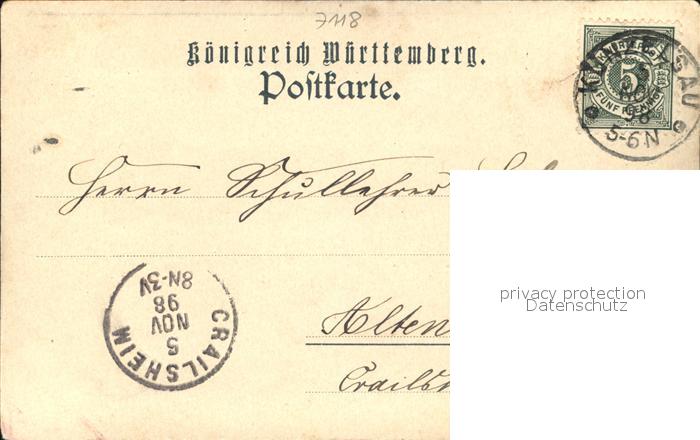 7118
Königreich Württemberg.
Postkarte.
FÜNF PFENNIG
5
NOV
98
5-6N
Herrn Schullehrer
privacy protection
Datenschutz
Alten
Crailsh
CRAILSHEIM
5
NOV
98
8N-3V